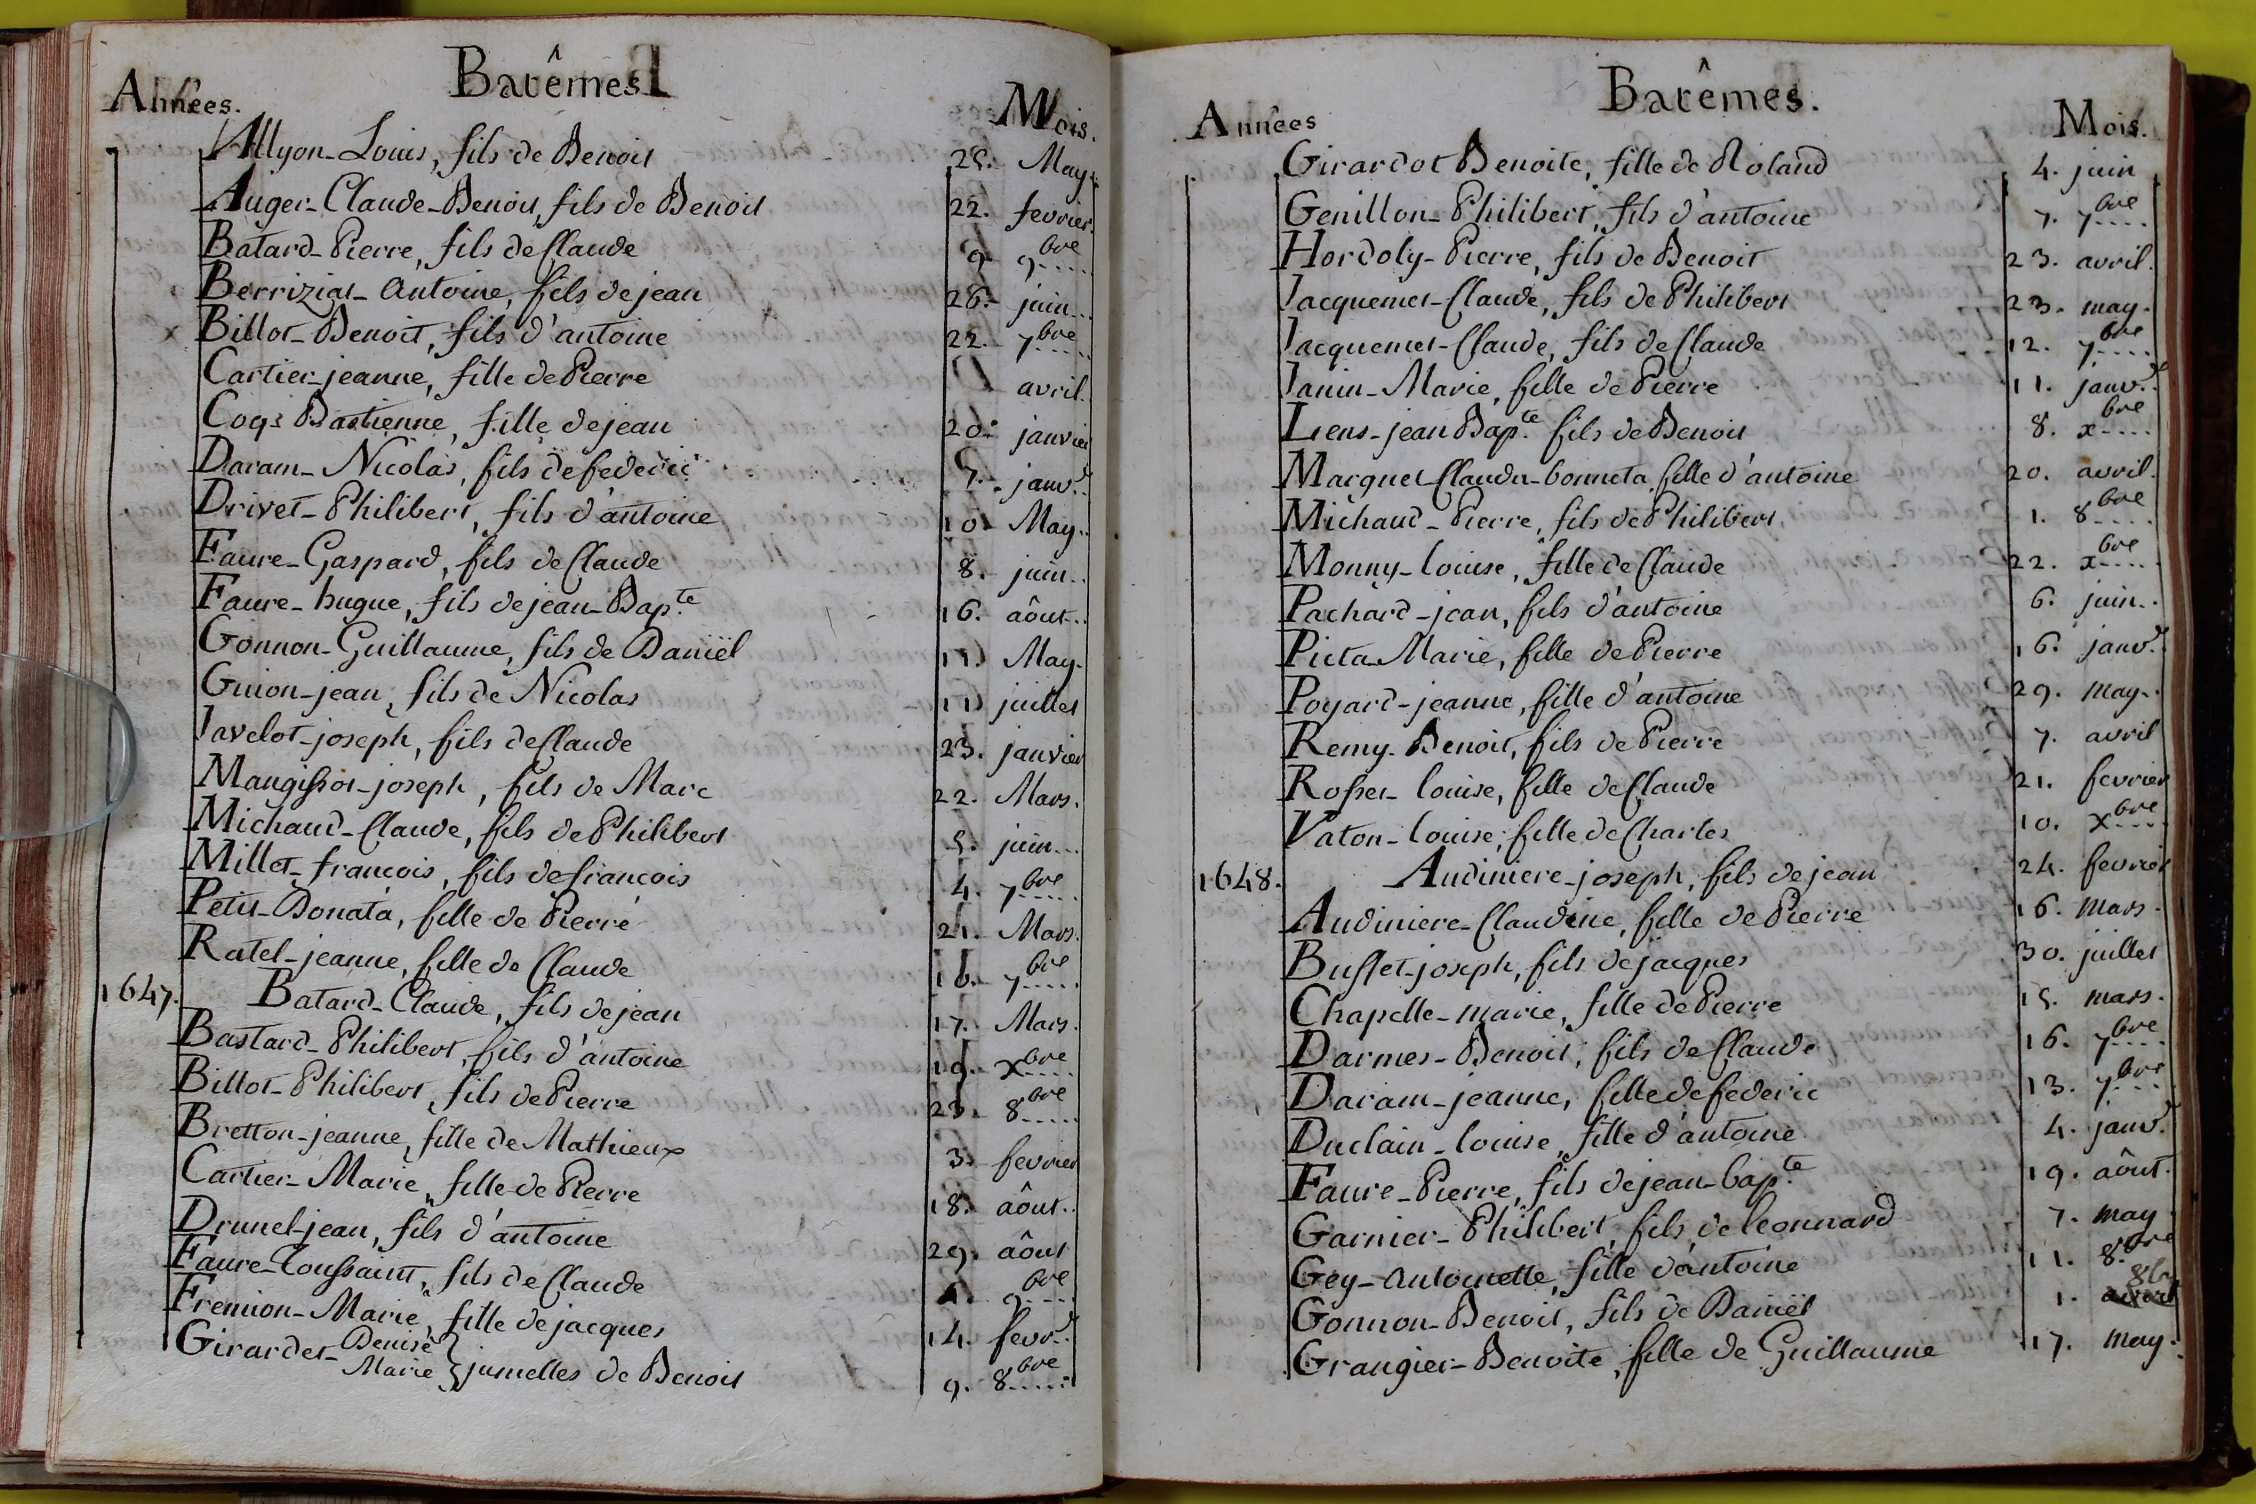 Batêmes
Années. Mois.
Allyon-Louis, fils de Benoit 25. May.
Auger-Claude-Benoit, fils de Benoit 22. fevrier.
Batard-Pierre, fils de Claude 9 9bre
Berriziat-Antoine, fils de jean 26. juin...
Billot-Benoit, fils d'antoine 22. 7bre
Cartier-jeanne, fille de Pierre avril.
Coqs Bastienne, fille de jean 20. janvier
Daram-Nicolas, fils de federic 7. janv.r
Drivet-Philibert, fils d'antoine 10. May..
Faure-Gaspard, fils de Claude 8. juin..
Faure-hugue, fils de jean-Bap.te 16. aôut..
Gonnon-Guillaume, fils de Daniël 11. May.
Guion-jean, fils de Nicolas 11. juillet
Javelot-joseph, fils de Claude 23. janvier
Mangissot-joseph, fils de Marc 22. Mars.
Michaud-Claude, fils de Philibert 5. juin...
Millet-francois, fils de francois 4. 7bre
Petit-Donata, fille de Pierre 21. Mars.
Ratel-jeanne, fille de Claude 16. 7bre
1647. Batard-Claude, fils de jean 17. Mars.
Bastard-Philibert, fils d'antoine 19. xbre
Billot-Philibert, fils de Pierre 23. 8bre
Bretton-jeanne, fille de Mathieux 3. fevrier
Cartier-Marie, fille de Pierre 18. aôut..
Drunel-jean, fils d'antoine 29. aôut
Faure-Toussaint, fils de Claude 9bre
Fremion-Marie, fille de jacques 14. fevr.r
Girardet-Denise
Marie } jumelles de Benoit 9. 8bre
Batêmes.
Années Mois.
Girardot Benoite, fille de Roland 4. juin
Genillon-Philibert, fils d'antoine 7. 7bre
Hordoly-Pierre, fils de Benoit 23. avril.
Jacquemet-Claude, fils de Philibert 23. may.
Jacquemet-Claude, fils de Claude 12. 7bre
Janin-Marie, fille de Pierre 11. janv.r
Liens-jean Bap.te fils de Benoit 8. xbre
Macquet Claudu-bonneta, fille d'antoine 20. avril.
Michaud-Pierre, fils de Philibert, 1. 8bre
Monny-louise, fille de Claude 22. xbre
Pachard-jean, fils d'antoine 6. juin..
Picta-Marie, fille de Pierre 16. janv.r
Poyard-jeanne, fille d'antoine 29. may..
Remy-Benoit, fils de Pierre 7. avril
Rosset-louise, fille de Claude 21. fevrier
Vaton-louise, fille de Charles 10. xbre
1648. Audiniere-joseph, fils de jean 24. fevrier
Audiniere-Claudine, fille de Pierre 16. Mars.
Buffet-joseph, fils de jacques 30. juillet
Chapelle-marie, fille de Pierre 15. mars.
Darmes-Benoit, fils de Claude 16. 7bre
Daram-jeanne, fille de federic 13. 7bre
Duclain-louise, fille d'antoine 4. janv.r
Faure-Pierre, fils de jean-bap.te 19. aôut.
Garnier-Philibert, fils de leonnard 7. may
Gey-antoinette, fille d'antoine 11. 8.bre
Gonnon-Benoit, fils de Daniël 1. 8br
Grangier-Benoite, fille de Guillaume 17. may.